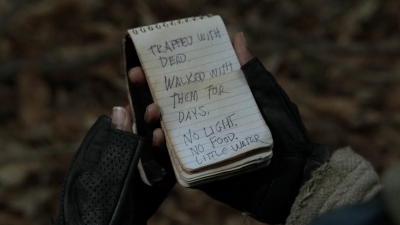 TRAPPED WITH
DEAD.
WALKED WITH
THEM FOR
DAYS.
NO LIGHT.
NO FOOD.
LITTLE WATER